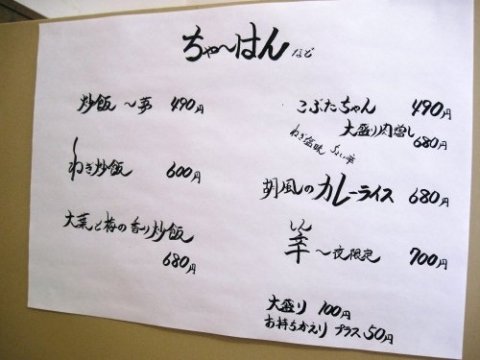 ちゃ〜はん など
炒飯 〜夢 490円
ねぎ炒飯 600円
大葉と梅の香り炒飯
680円
こぶたちゃん 490円
大盛り肉増し
680円
ねぎ塩味
胡風のカレーライス 680円
しん
辛 〜夜限定 700円
大盛り 100円
お持ちかえり プラス50円